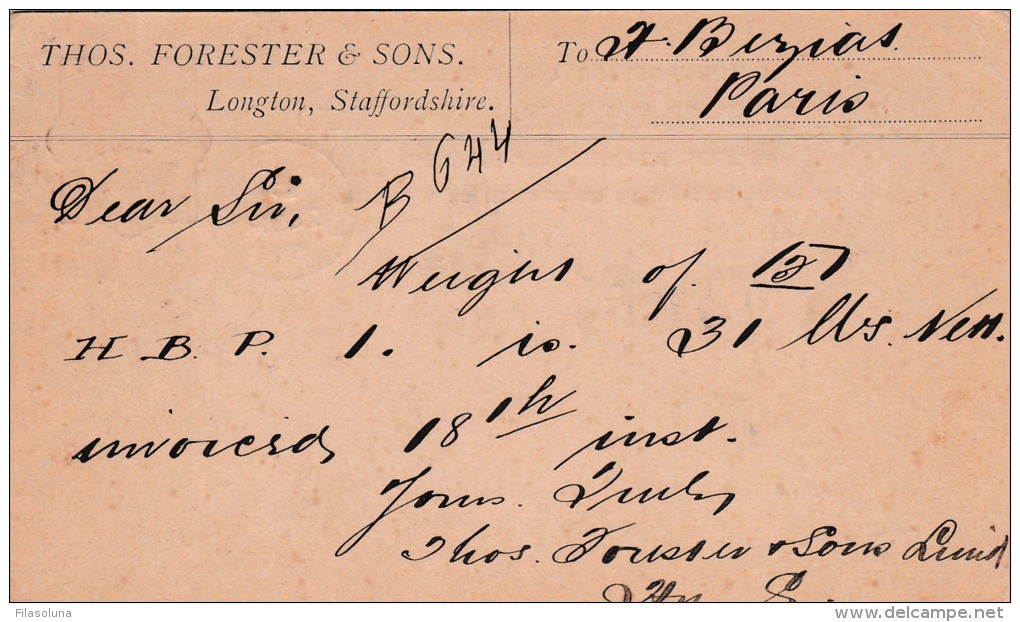 THOS. FORESTER & SONS.
Longton, Staffordshire.
To H. Bezias.
Paris
B 644
Dear Sir,
Weight of
H. B. P. 1. is. 31 lbs. Nett.
invoiced 18th inst.
Yours. Truly
Thos. Forester & Sons Limid
Filasoluna
delcampe.net